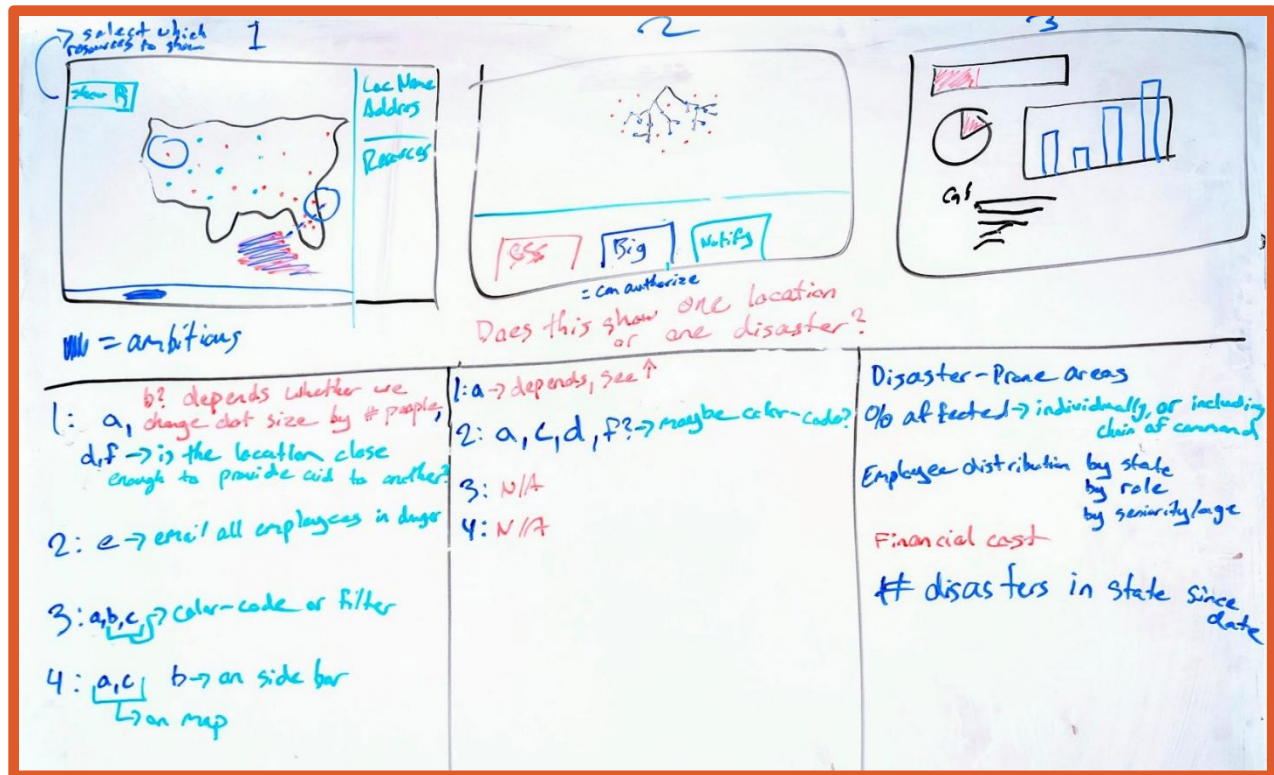 1
2
3
→ select which
resources to show
show
Loc Name
Address
Resources
= ambitious
$$$
Big
Notify
= can authorize
Does this show one location
or one disaster?
b? depends whether we
1: a, change dot size by # people,
d,f → is the location close
enough to provide aid to another?
2: e → email all employees in danger
3: a,b,c, → color-code or filter
4: a,c b → on side bar
↳ on map
1: a → depends, see ↑
2: a, c, d, f? → maybe color-code?
3: N/A
4: N/A
Disaster-Prone areas
% affected → individually, or including
chain of command
Employee distribution by state
by role
by seniority/age
Financial cost
# disasters in state since
date